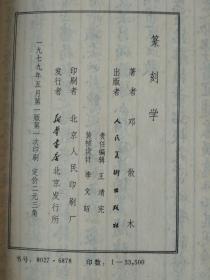 篆刻学
著者 邓散木
出版者 人民美术出版社
责任编辑 王靖宪
封面设计 李文昭
印刷者 北京人民印刷厂
发行者 新华书店北京发行所
一九七九年五月第一版第一次印刷 定价二元三角
书号：8027·6878 印数：1—33,500